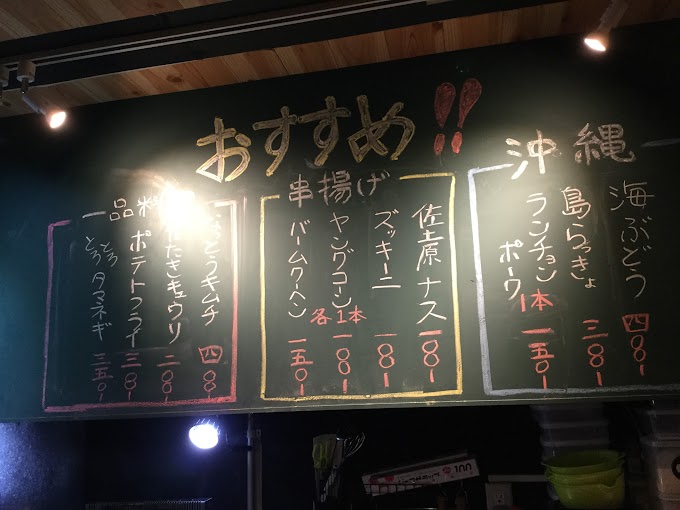 おすすめ!!
沖縄
海ぶどう 四〇〇-
島らっきょ 三〇〇-
ランチョンポーク 1本 一五〇-
串揚げ
佐土原ナス 一〇〇-
ズッキーニ 一〇〇-
ヤングコーン 各1本 一〇〇-
バームクーヘン 一五〇-
一品料
キムチ 四〇〇-
たきキュウリ 二〇〇-
ポテトフライ 三〇〇-
とろとろタマネギ 三五〇-